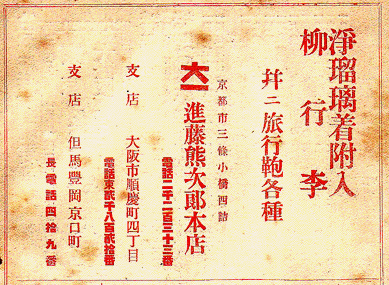 淨瑠璃着附入
柳行李
幷ニ旅行鞄各種
京都市三條小橋西詰
大一 進藤熊次郎本店
電話二千二百三十三番
支店 大阪市順慶町四丁目
電話東貳千八百貳拾番
支店 但馬豐岡京口町
長電話四拾九番